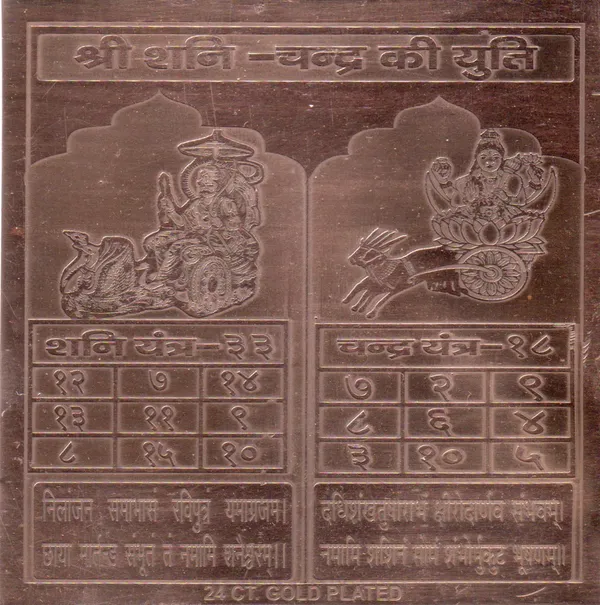 श्री शनि - चन्द्र की युति
शनि यंत्र - ३३
१२ ७ १४
१३ ११ ९
८ १५ १०
निलांजन समाभासं रविपुत्रं यमाग्रजम्।
छाया मार्तन्ड संभूत तं नमामि शनैश्चरम्।।
चन्द्र यंत्र - १८
७ २ ९
८ ६ ४
३ १० ५
दधिशंखतुषाराभं क्षीरोदार्णव संभवम्।
नमामि शशिनं सोमं शंभोर्मुकुट भूषणम्।।
24 CT. GOLD PLATED